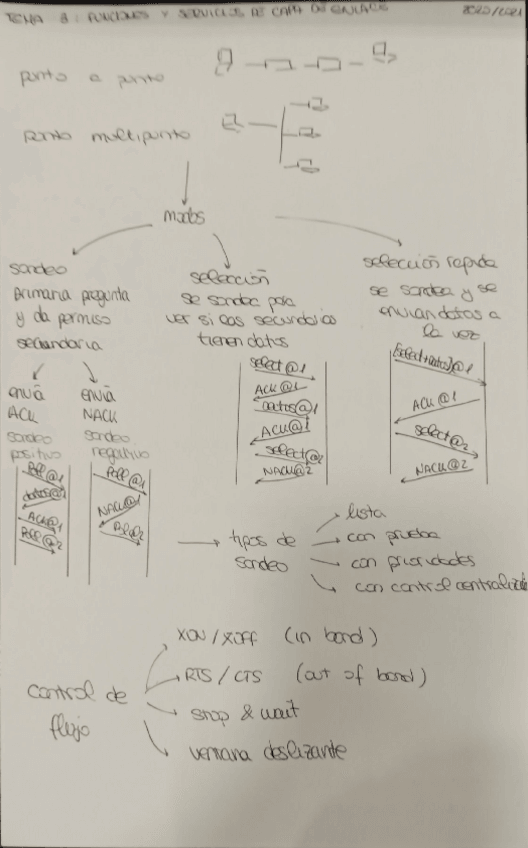 TEMA 3: FUNCIONES Y SERVICIOS DE CAPA DE ENLACE
2020/2021
punto a punto
punto multipunto
modos
sondeo
primaria pregunta
y da permiso
secundaria
envía
ACK
sondeo
positivo
envía
NACK
sondeo
negativo
Poll@1
datos@1
ACK@1
Poll@2
Poll@1
NACK@1
Poll@2
selección
se sondea para
ver si las secundarias
tienen datos
select@1
ACK@1
datos@1
ACK@1
select@2
NACK@2
selección rapida
se sondea y se
envian datos a
la vez
ACK@1
select@2
NACK@2
tipos de
sondeo
lista
con prueba
con prioridades
con control centralizado
control de
flujo
XON/XOFF (in band)
RTS/CTS (out of band)
stop & wait
ventana deslizante